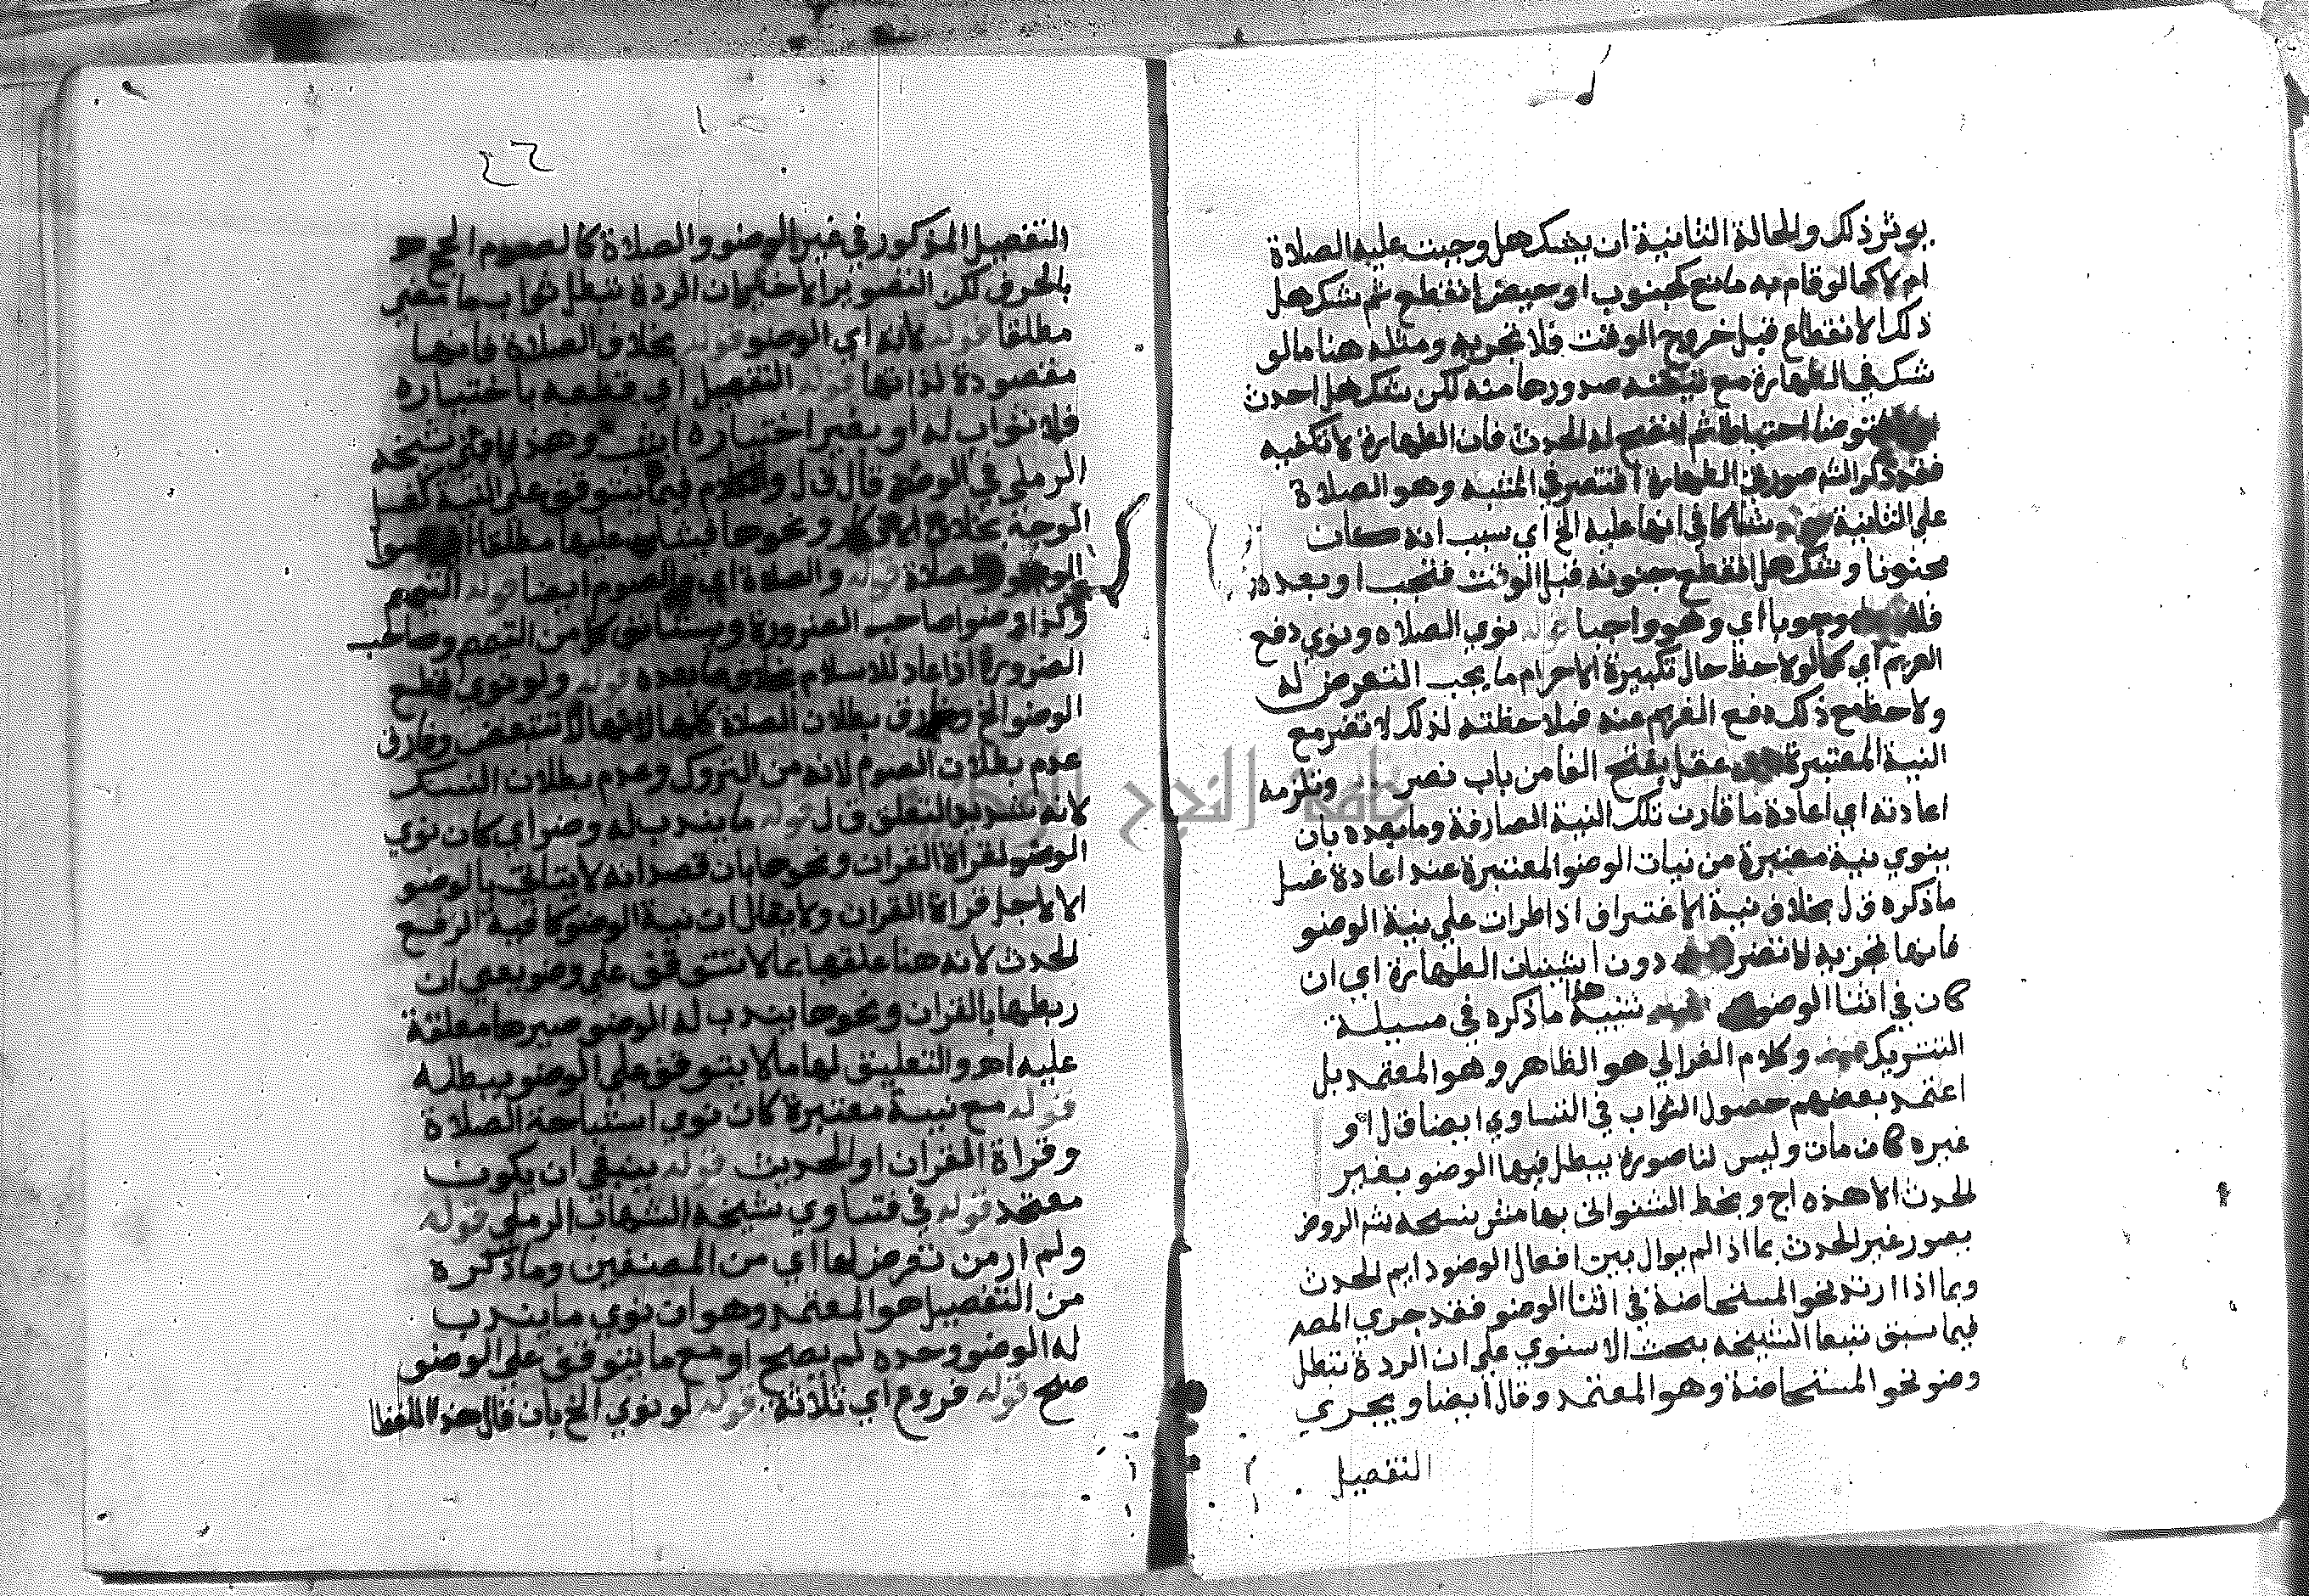 يوثر ذلك والحالة الثانية ان يشك هل وجبت عليه الصلاة
ام لا كما لو قام به مانع كجنون او حيض انقطع ثم شك هل
ذلك الانقطاع قبل خروج الوقت فلا تجزيه ومثله هنا ما لو
شك في الطهارة مع تيقنه صدورها منه لكن شك هل احدث
فتوضا احتياطا ثم اتضح له الحدث فان الطهارة لا تكفيه
فقد ذكر الشه صورتي الطهارة اقتصر في المشبه وهو الصلاة
علي الثانية شاكا في انها عليه الخ اي سبب انه كان
مجنونا وشك هل انقطع جنونه قبل الوقت فتجب او بعده
فلا وجوبا اي وهو واجبا قوله نوي الصلاه ونوي دفع
الغريم اي كما لو لاحظ حال تكبيرة الاحرام ما يجب التعرض له
ولاحظ مع ذلك دفع الغريم عنه فملاحظته لذلك لا تضر مع
النية المعتبرة عقل بفتح الفا من باب نصر وتلزمه
اعادته اي اعادة ما قارن تلك النية الصارفة وما بعده بان
ينوي نية معتبرة من نيات الوضو المعتبرة عند اعادة غسل
ماذكره ق ل بخلاف نية الاغتراف اذا طرات علي نية الوضو
فانها تجزيه لا تضر دون استثنيات الطهارة اي ان
كان في اثنا الوضو تنبيه هذا ماذكره في مسيلة
التشريك وكلام الغزالي هو الظاهر وهو المعتمد بل
اعتمد بعضهم حصول الثواب في التساوي ايضا ق ل او
غيره كان مات وليس لنا صورة يبطل فيها الوضو بغير
الحدث الا هذه اج وبخط الشنواني بهامش نسخه شم الروض
بصور غير الحدث بما اذا لم يوال بين افعال الوضو دايم الحدث
وبما اذا ارتد نحو المستحاضة في اثنا الوضو فقد جري المصه
فيما سبق تبعا لشيخه بحث الاسنوي علي ان الردة تبطل
وضو نحو المستحاضة وهو المعتمد وقال ايضا ويجري
التفصيل
٢٦
التفصيل المذكور في غير الوضو والصلاة كالصوم الحج اهـ
بالحرف لكن التصوير الاخير ان الردة تبطل ثواب ما مضي
مطلقا قوله لانه اي الوضو قوله بخلاف الصلاة فانها
مقصودة لذاتها قوله التفصيل اي قطعه باختياره
فلا ثواب له او بغير اختياره اثيب وهذا ما في شيخه
الرملي في الوضو قال ق ل والكلام فيما يتوقف علي النية كغسل
الوجه بخلاف ونحوها فيثاب عليها مطلقا
الوضو والصلاة قوله والصلاة اي والصوم ايضا قوله التيمم
وكذا وضوا صاحب الضرورة ويستانف كل من التيمم وصاحب
الضرورة اذا عاد للاسلام بخلاف ما بعده قوله ولو نوي قطع
الوضو الخ وفارق بطلان الصلاة كلها لانها لا تتبعض وفارق
عدم بطلان الصوم لانه من التروك وعدم بطلان النسك
لانه شديد التعلق ق ل قوله ما يندب له وضو اي كان نوي
الوضو لقراة القران ونحوها بان قصد انه لا يتاتي بالوضو
الا لاجل قراة القران ولا يقال ان نية الوضو كافية الرفع
الحدث لانه هنا علقها عما لا تتوقف علي وضو يعني ان
ربطها بالقران ونحوها يندب له الوضو صيرها معلقة
عليه اهـ والتعليق لها ما لا يتوقف علي الوضو يبطله
قوله مع نية معتبرة كان نوي استباحة الصلاة
وقراة القران او الحديث قوله ينبغي ان يكون
معتمد قوله في فتاوي شيخه الشهاب الرملي قوله
ولم ار من تعرض لها اي من المصنفين وما ذكره
من التفصيل هو المعتمد وهو ان نوي ما يندب
له الوضو وحده لم يصح او مع ما يتوقف علي الوضو
صح قوله فروع اي ثلاثة قوله لو نوي الخ بان قال